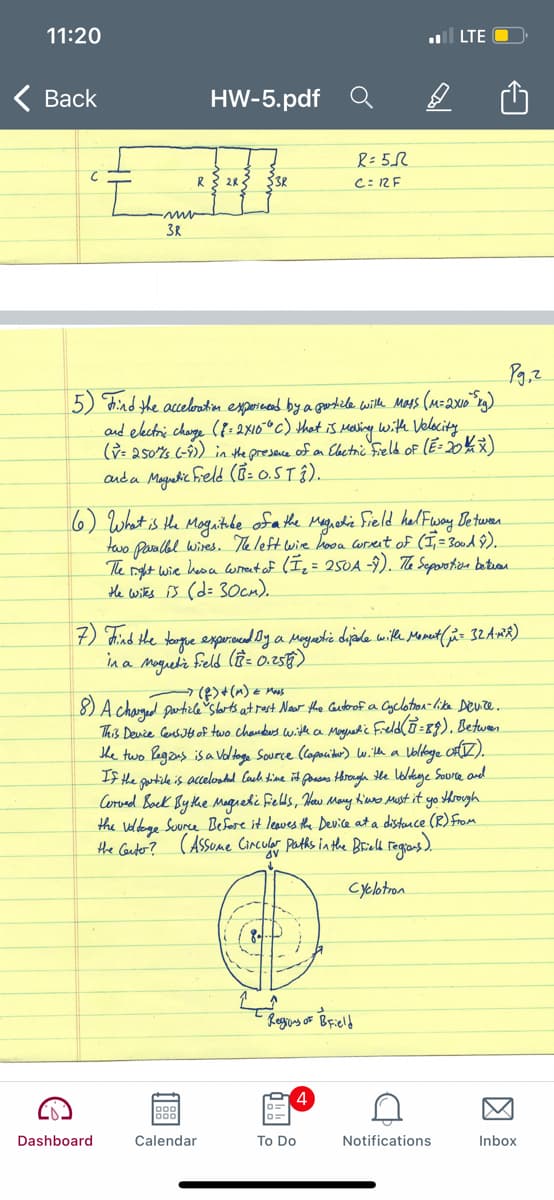 11:20
LTE
Back
HW-5.pdf
R = 5Ω
C = 12 F
C
R
2R
3R
3R
Pg. 2
5) Find the acceleration experienced by a particle with Mass (M=2×10⁻⁵kg)
and electric charge (q=2×10⁻⁶C) that is Moving with Velocity
(v⃗= 250 m/s (-ŷ)) in the presence of an Electric Field of (E⃗= 20 x̂)
and a Magnetic Field (B⃗= 0.5T ẑ).
6) What is the Magnitude of a the Magnetic Field halfway Between
two parallel wires. The left wire has a current of (I⃗₁=300A ŷ).
The right wire has a current of (I⃗₂= 250A -ŷ). The Separation between
the wires is (d= 30cm).
7) Find the torque experienced by a Magnetic dipole with Moment (μ⃗= 32 A·m² x̂)
in a Magnetic Field (B⃗= 0.25T ŷ)
(q) + (m) ← Mass
8) A charged particle starts at rest Near the Center of a Cyclotron-like Device.
This Device Consists of two chambers with a Magnetic Field (B⃗=Bŷ). Between
the two Regions is a Voltage Source (Capacitor) with a Voltage of (V).
If the particle is accelerated Each time it passes through the Voltage Source and
Curved Back By the Magnetic Fields, How Many times Must it go through
the Voltage Source Before it leaves the Device at a distance (R) From
the Center? (Assume Circular paths in the BField regions).
ΔV
Cyclotron
q
Regions of B⃗ Field
4
Dashboard
Calendar
To Do
Notifications
Inbox